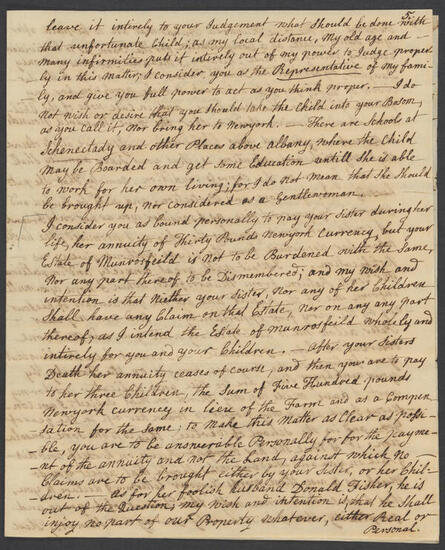 5.
leave it intirely to your Judgement what Should be done with
that unfortunate Child; as my local distance, My old age and -
many infirmities puts it intirely out of my power to Judge proper
ly in this Matter; I consider you as the Representative of my fami-
ly, and give you full power to act as you think proper. — I do
Not wish or desire that you Should take the Child into your Bosom,
as you Call it, Nor bring her to Newyork. — There are Schools at
Scheneclady and other Places above albany, where the Child
May be Boarded and get Some Education untill She is able
to work for her own living; for I do not Mean that She Should
be brought up, nor Considered as a Gentlewoman.
I consider you as bound personally to pay your Sister during her
life, her annuity of Thirty Pounds Newyork Currency, but your
Estate of Munrosfeild is Not to be Burdened with the Same,
Nor any part thereof to be Dismembered; and my wish and
intention is that Neither your Sister, Nor any of her Children
Shall have any Claim on that Estate, Nor on any any part
thereof; as I intend the Estate of Munrosfeild wholely and
intirely for you and your Children. — After your Sisters
Death her annuity ceases of course, and then you are to pay
to her three Children, the Sum of Five Hundred pounds
Newyork currency in lieu of the Farm and as a Compen
sation for the Same; to make this Matter as Clear as possi-
-ble, you are to be answerable Personally for for the payme-
nt of the annuity and not the Land, against which no
Claims are to be brought either by your Sister, or her Chil-
dren. — As for her foolish husband Donald Fisher, he is
out of the Question; my wish and intention is, that he Shall
injoy no part of our Property whatever, either Real or
Personal.